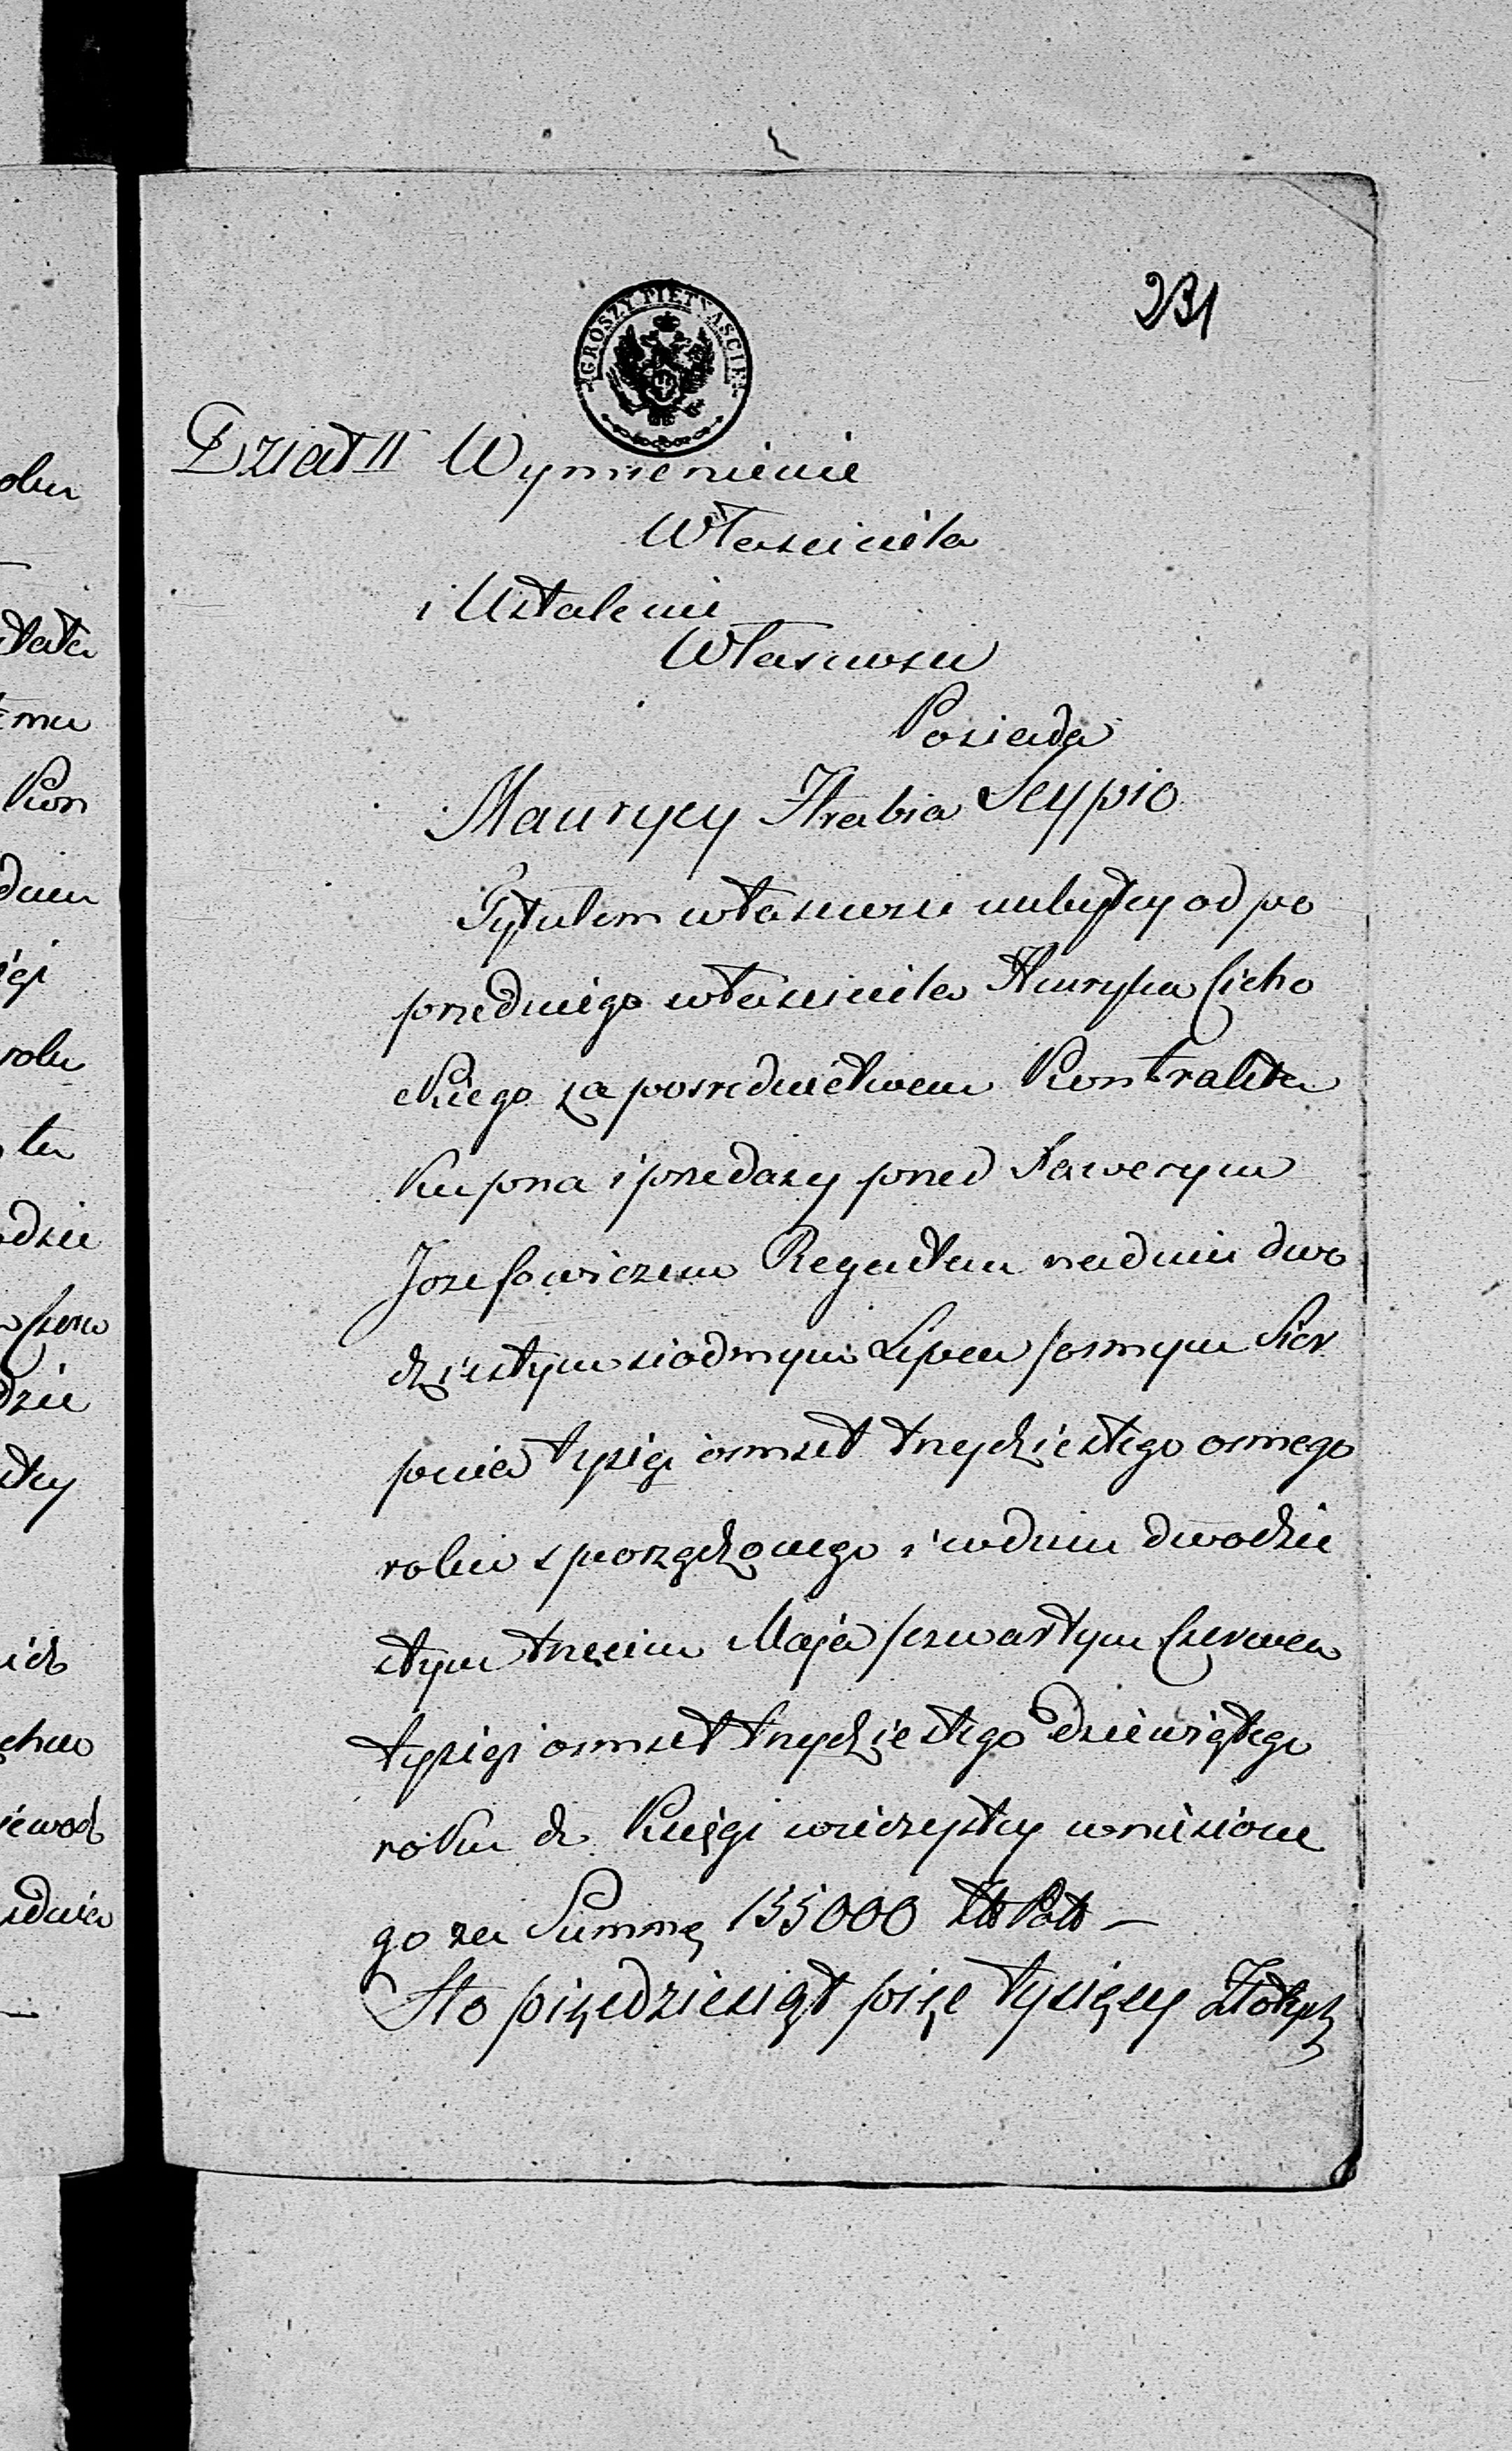 231
GROSZY PIETNAŚCIE
Dział II Wymienienie
Właściciela
i Ustalenie
Własności
Posiada
Maurycy Hrabia Scypio
Tytułem własności nabytey od po
przedniego właściciela Henryka Cicho
ckiego za pośrednictwem Kontraktu
Kupna i przedaży przed Xawerym
Józefowiczem Regentem na dniu dwo
dziestym siódmym Lipca / osmym Sier
pnia tysiąc ośmset trzydziestego osmego
roku sporządzonego i w dniu dwodzie
stym trzecim Maja / czwartym Czerwca
tysiąc ośmset trzydziestego dziewiątego
roku do Księgi wieczystey wniesione
go za Summę 155000 Złt Pols —
Sto pięćdziesiąt pięć tysięcy Złotych
olu
tata
emu
Kon
dniu
iąc
roku
tu
odzie
Czerw
dzie
stey